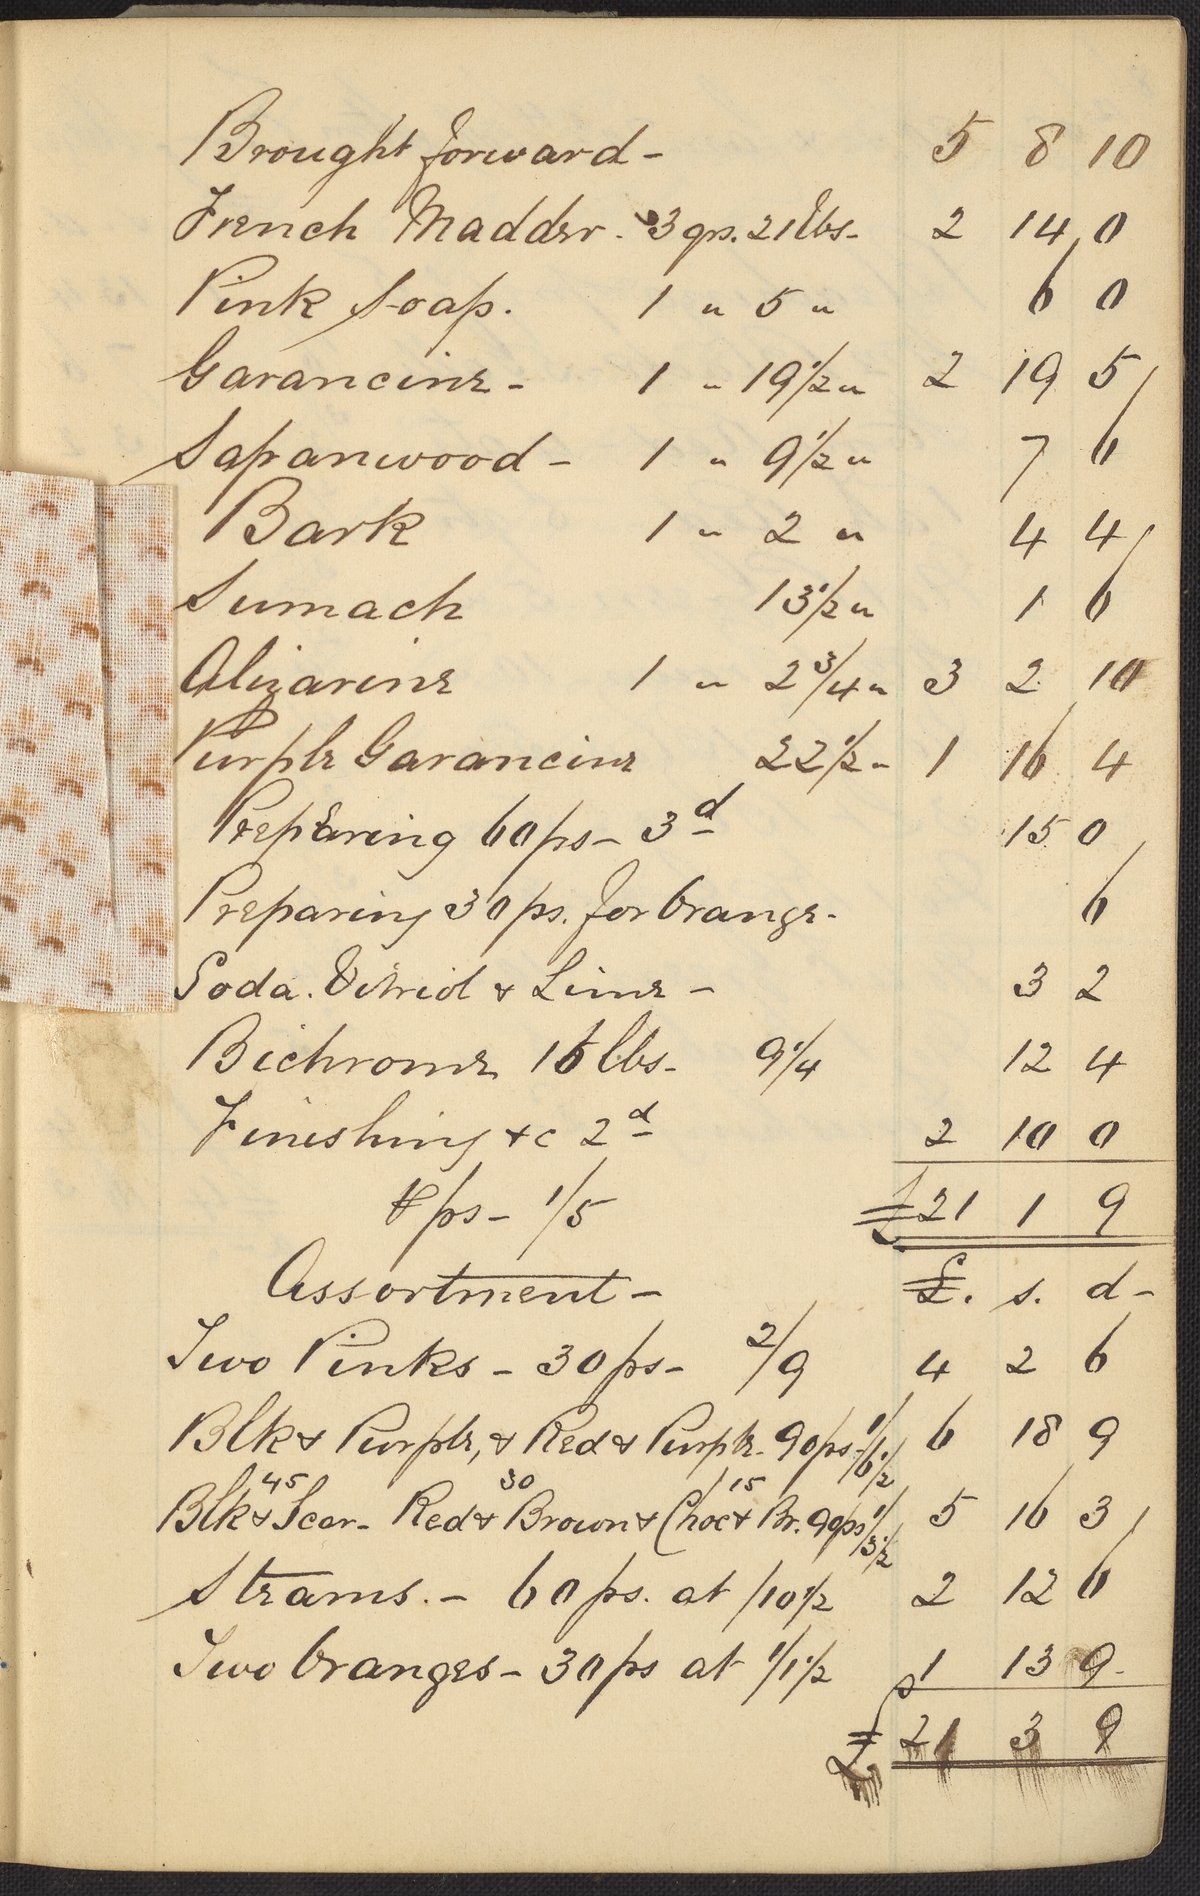 Brought forward - 5 8 10
French Madder - 3 qrs. 21 lbs - 2 14 0
Pink Soap. 1 " 5 " 6 0
Garancine - 1 " 19 1/2 " 2 19 5
Sapanwood - 1 " 9 1/2 " 7 6
Bark 1 " 2 " 4 4
Sumach 13 1/2 " 1 6
Alizarine 1 " 2 3/4 " 3 2 10
Purple Garancine 22 1/2 " 1 16 4
Preparing 60 ps - 3d 15 0
Preparing 30 ps. for Orange - 6
Soda. Vitriol & Lime - 3 2
Bichrome 16 lbs - 9 1/4 12 4
Finishing &c 2d 2 10 0
℔ ps - 1/5 £21 1 9
Assortment - £. s. d -
Two Pinks - 30 ps - 2/9 4 2 6
Blk & Purple, & Red & Purple - 90 ps - 1/6 1/2 6 18 9
45 30 15
Blk & Scar - Red & Brown & Choc & Br. 90 ps 1/3 1/2 5 16 3
Steams. - 60 ps. at /10 1/2 2 12 6
Two Oranges - 30 ps at 1/1 1/2 1 13 9
£21 3 9